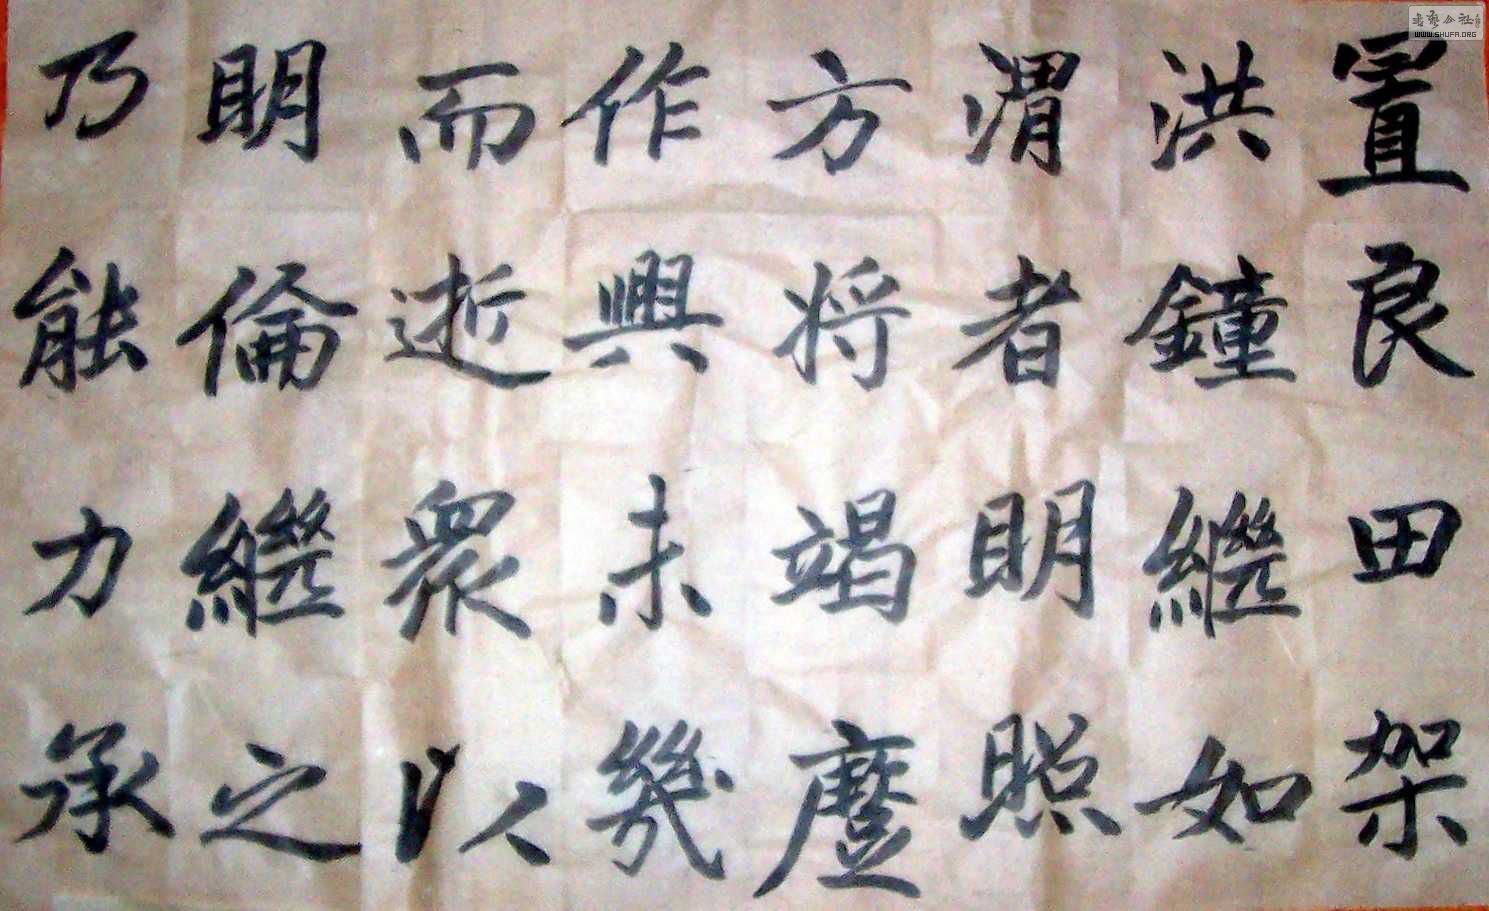 置良田架
洪鐘繼如
渭者明照
方将竭䕻
作興未幾
而逝衆以
明倫繼之
乃能力承
WWW.SHUFA.ORG